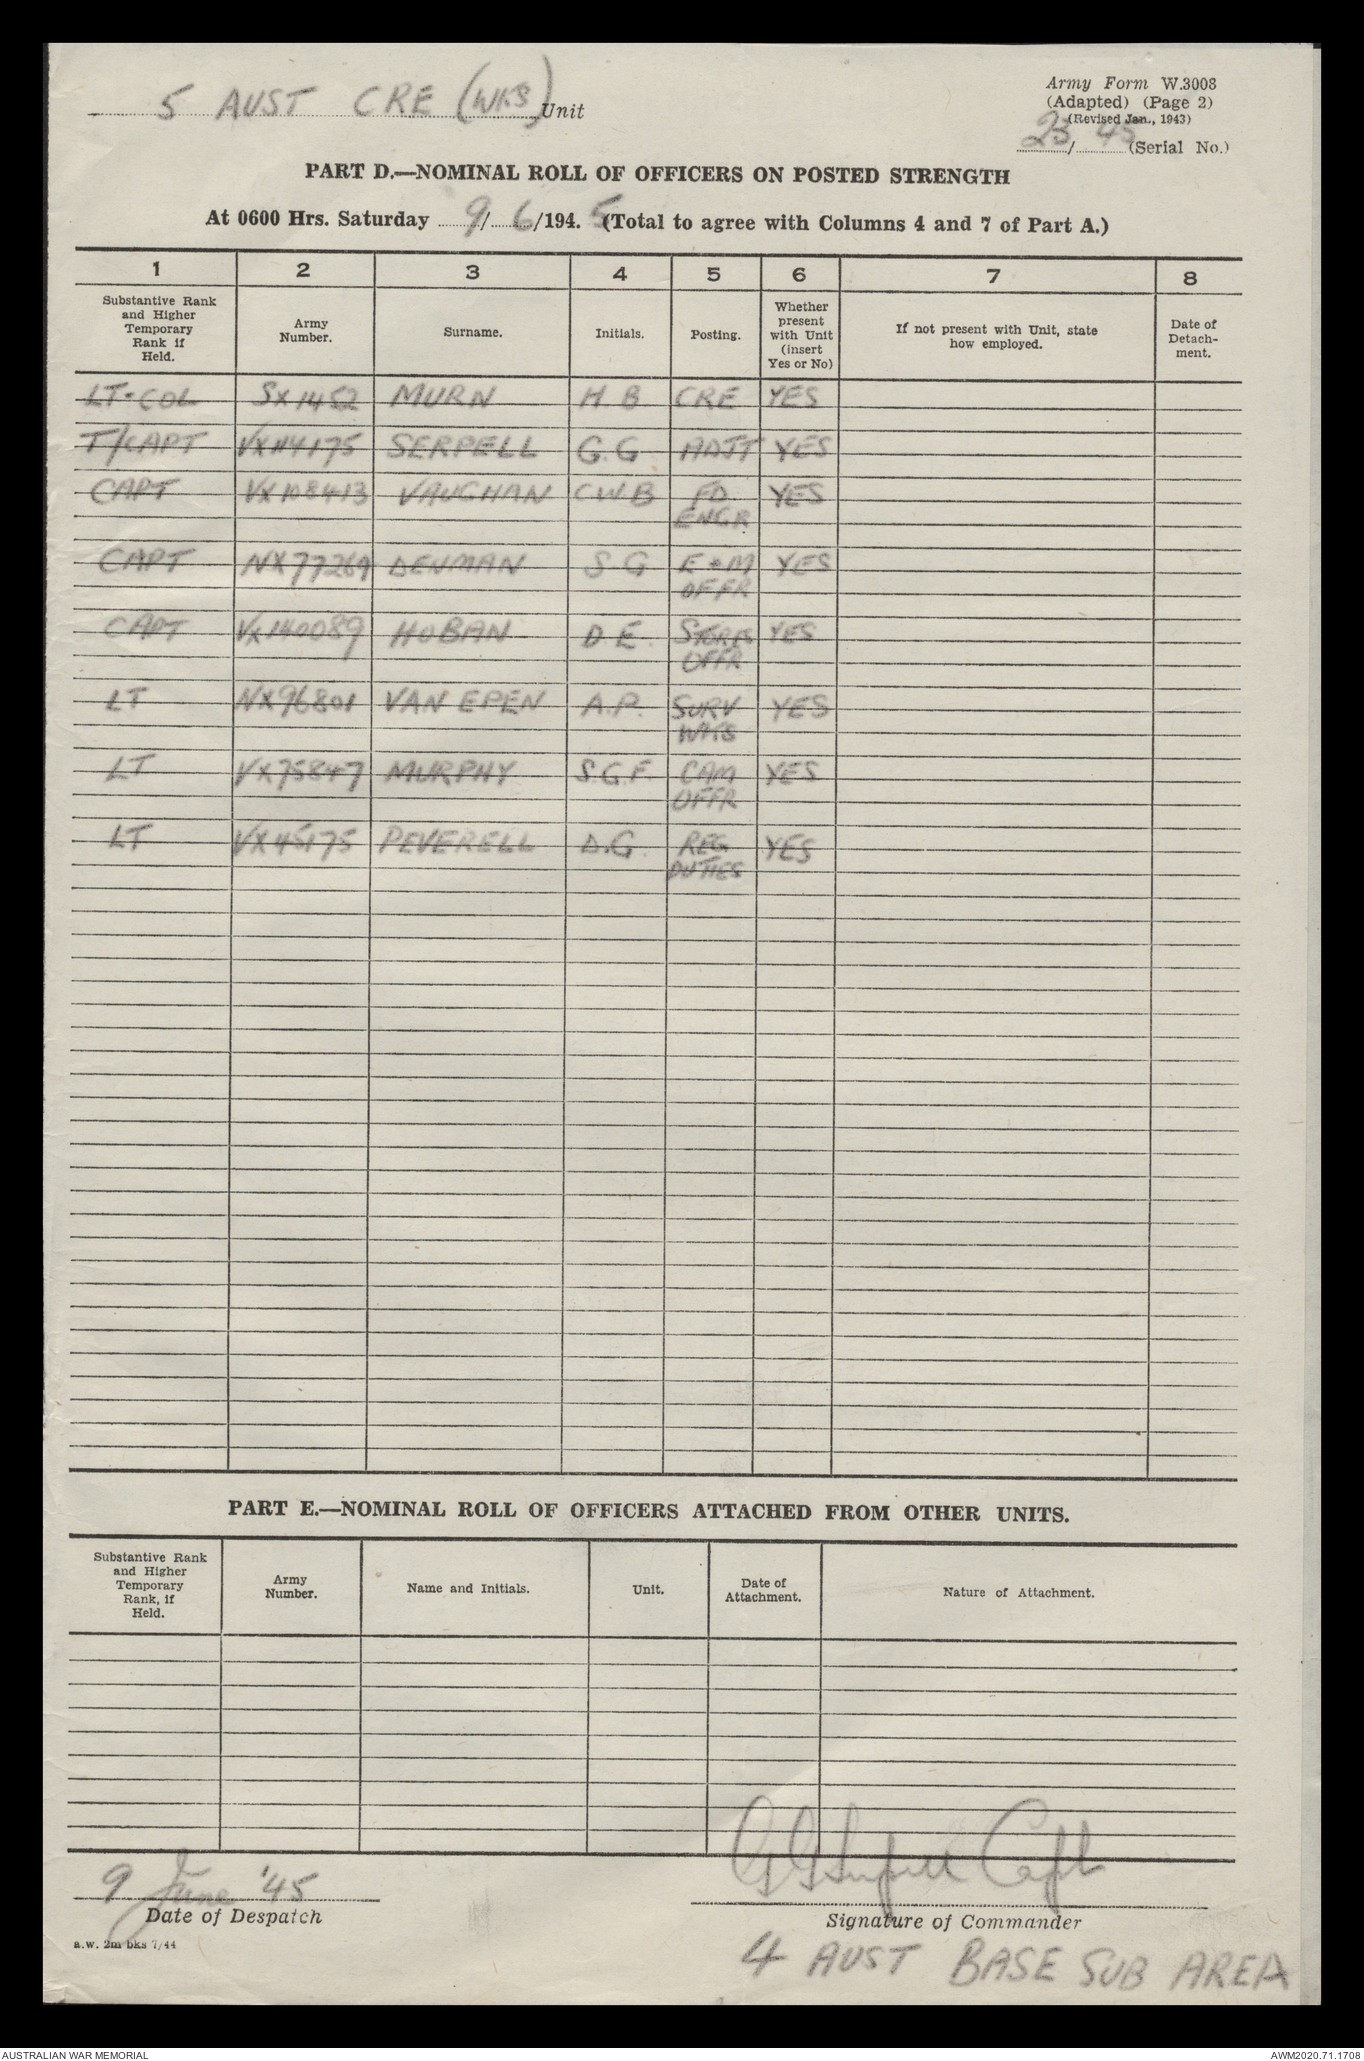 5 AUST CRE (WKS) Unit
Army Form W.3008
(Adapted) (Page 2)
(Revised Jan., 1943)
23/45 (Serial No.)
PART D.—NOMINAL ROLL OF OFFICERS ON POSTED STRENGTH
At 0600 Hrs. Saturday 9/6/1945 (Total to agree with Columns 4 and 7 of Part A.)
1 2 3 4 5 6 7 8
Substantive Rank and Higher Temporary Rank if Held. Army Number. Surname. Initials. Posting. Whether present with Unit (insert Yes or No) If not present with Unit, state how employed. Date of Detach-ment.
LT-COL SX1452 MURN H.B. CRE YES
T/CAPT VX114175 SERPELL G.G ADJT YES
CAPT VX108413 VAUGHAN C.W.B FD ENGR YES
CAPT NX77269 DENMAN S G E+M OFFR YES
CAPT VX140089 HOBAN D E. STORES OFFR YES
LT NX96801 VAN EPEN A.P. SURV WKS YES
LT VX75847 MURPHY S.G.F. CAM OFFR YES
LT VX45175 PEVERELL D.G. REG DUTIES YES
PART E.—NOMINAL ROLL OF OFFICERS ATTACHED FROM OTHER UNITS.
Substantive Rank and Higher Temporary Rank, if Held. Army Number. Name and Initials. Unit. Date of Attachment. Nature of Attachment.
9 June '45
Date of Despatch
a.w. 2m bks 7/44
G G Serpell Capt
Signature of Commander
4 AUST BASE SUB AREA
AUSTRALIAN WAR MEMORIAL
AWM2020.71.1708